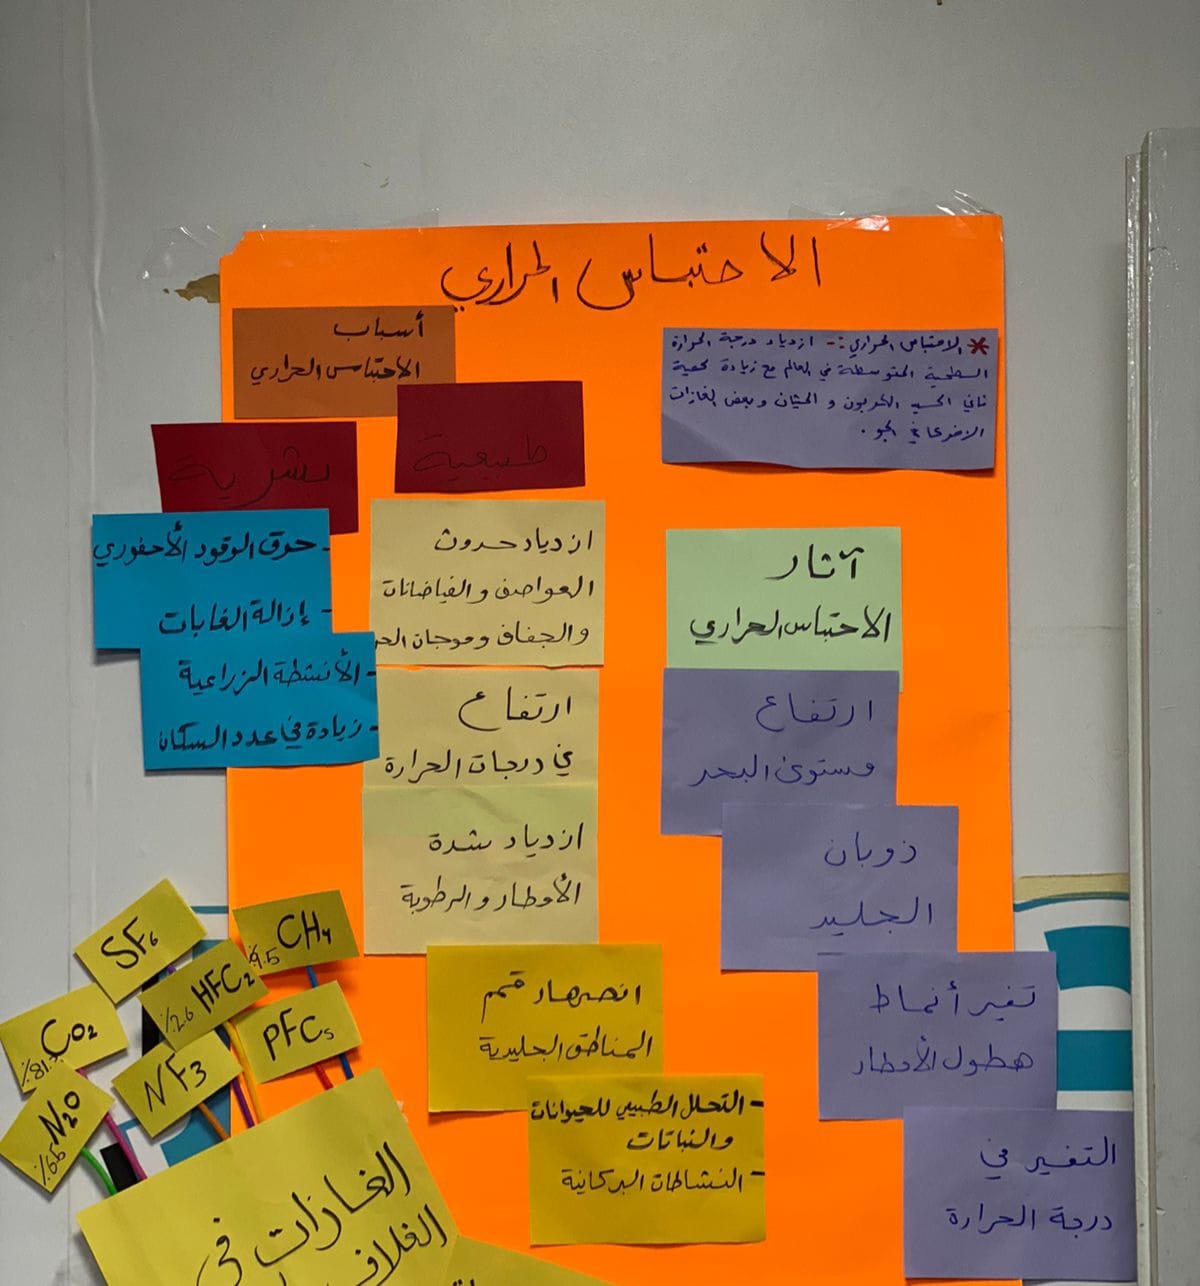 الاحتباس الحراري
* الاحتباس الحراري :- ازدياد درجة الحرارة
السطحية المتوسطة في العالم مع زيادة كمية
ثاني اكسيد الكربون و الميثان و بعض الغازات
الاخرى في الجو .
أسباب
الاحتباس الحراري
طبيعية
بشرية
- حرق الوقود الأحفوري
- إزالة الغابات
- الأنشطة الزراعية
- زيادة في عدد السكان
ازدياد حدوث
العواصف والفياضانات
والجفاف وموجات الحر
ارتفاع
في درجات الحرارة
ازدياد شدة
الأمطار والرطوبة
انصهار قمم
المناطق الجليدية
- التحلل الطبيعي للحيوانات
والنباتات
- النشاطات البركانية
آثار
الاحتباس الحراري
ارتفاع
مستوى البحر
ذوبان
الجليد
تغير أنماط
هطول الأمطار
التغير في
درجة الحرارة
SF6
CH4
%9.5
HFC2
%2.6
CO2
PFCs
NF3
N2O
%6.5
الغازات في
الغلاف